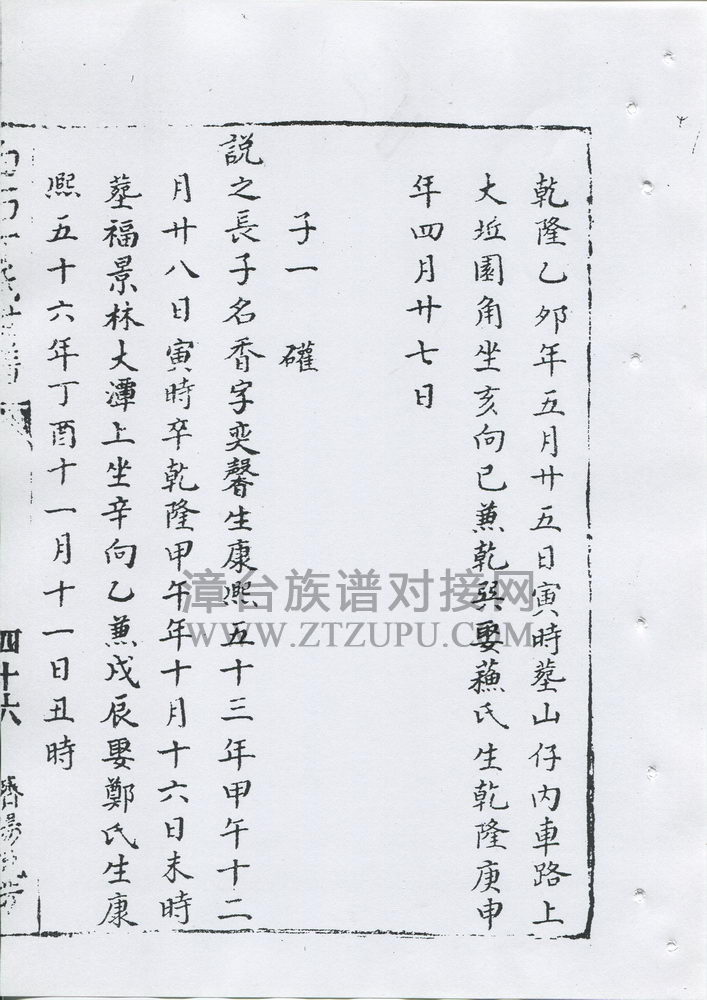 乾隆乙夘年五月廿五日寅時墓山仔内車路上
大坵園角坐亥向巳兼乾巽娶蘓氏生乾隆庚申
年四月廿七日
子一 礭
説之長子名香字奕馨生康熙五十三年甲午十二
月廿八日寅時卒乾隆甲午年十月十六日未時
墓福景林大潭上坐辛向乙兼戌辰娶鄭氏生康
熙五十六年丁酉十一月十一日丑時
四十六
漳台族谱对接网
WWW.ZTZUPU.COM